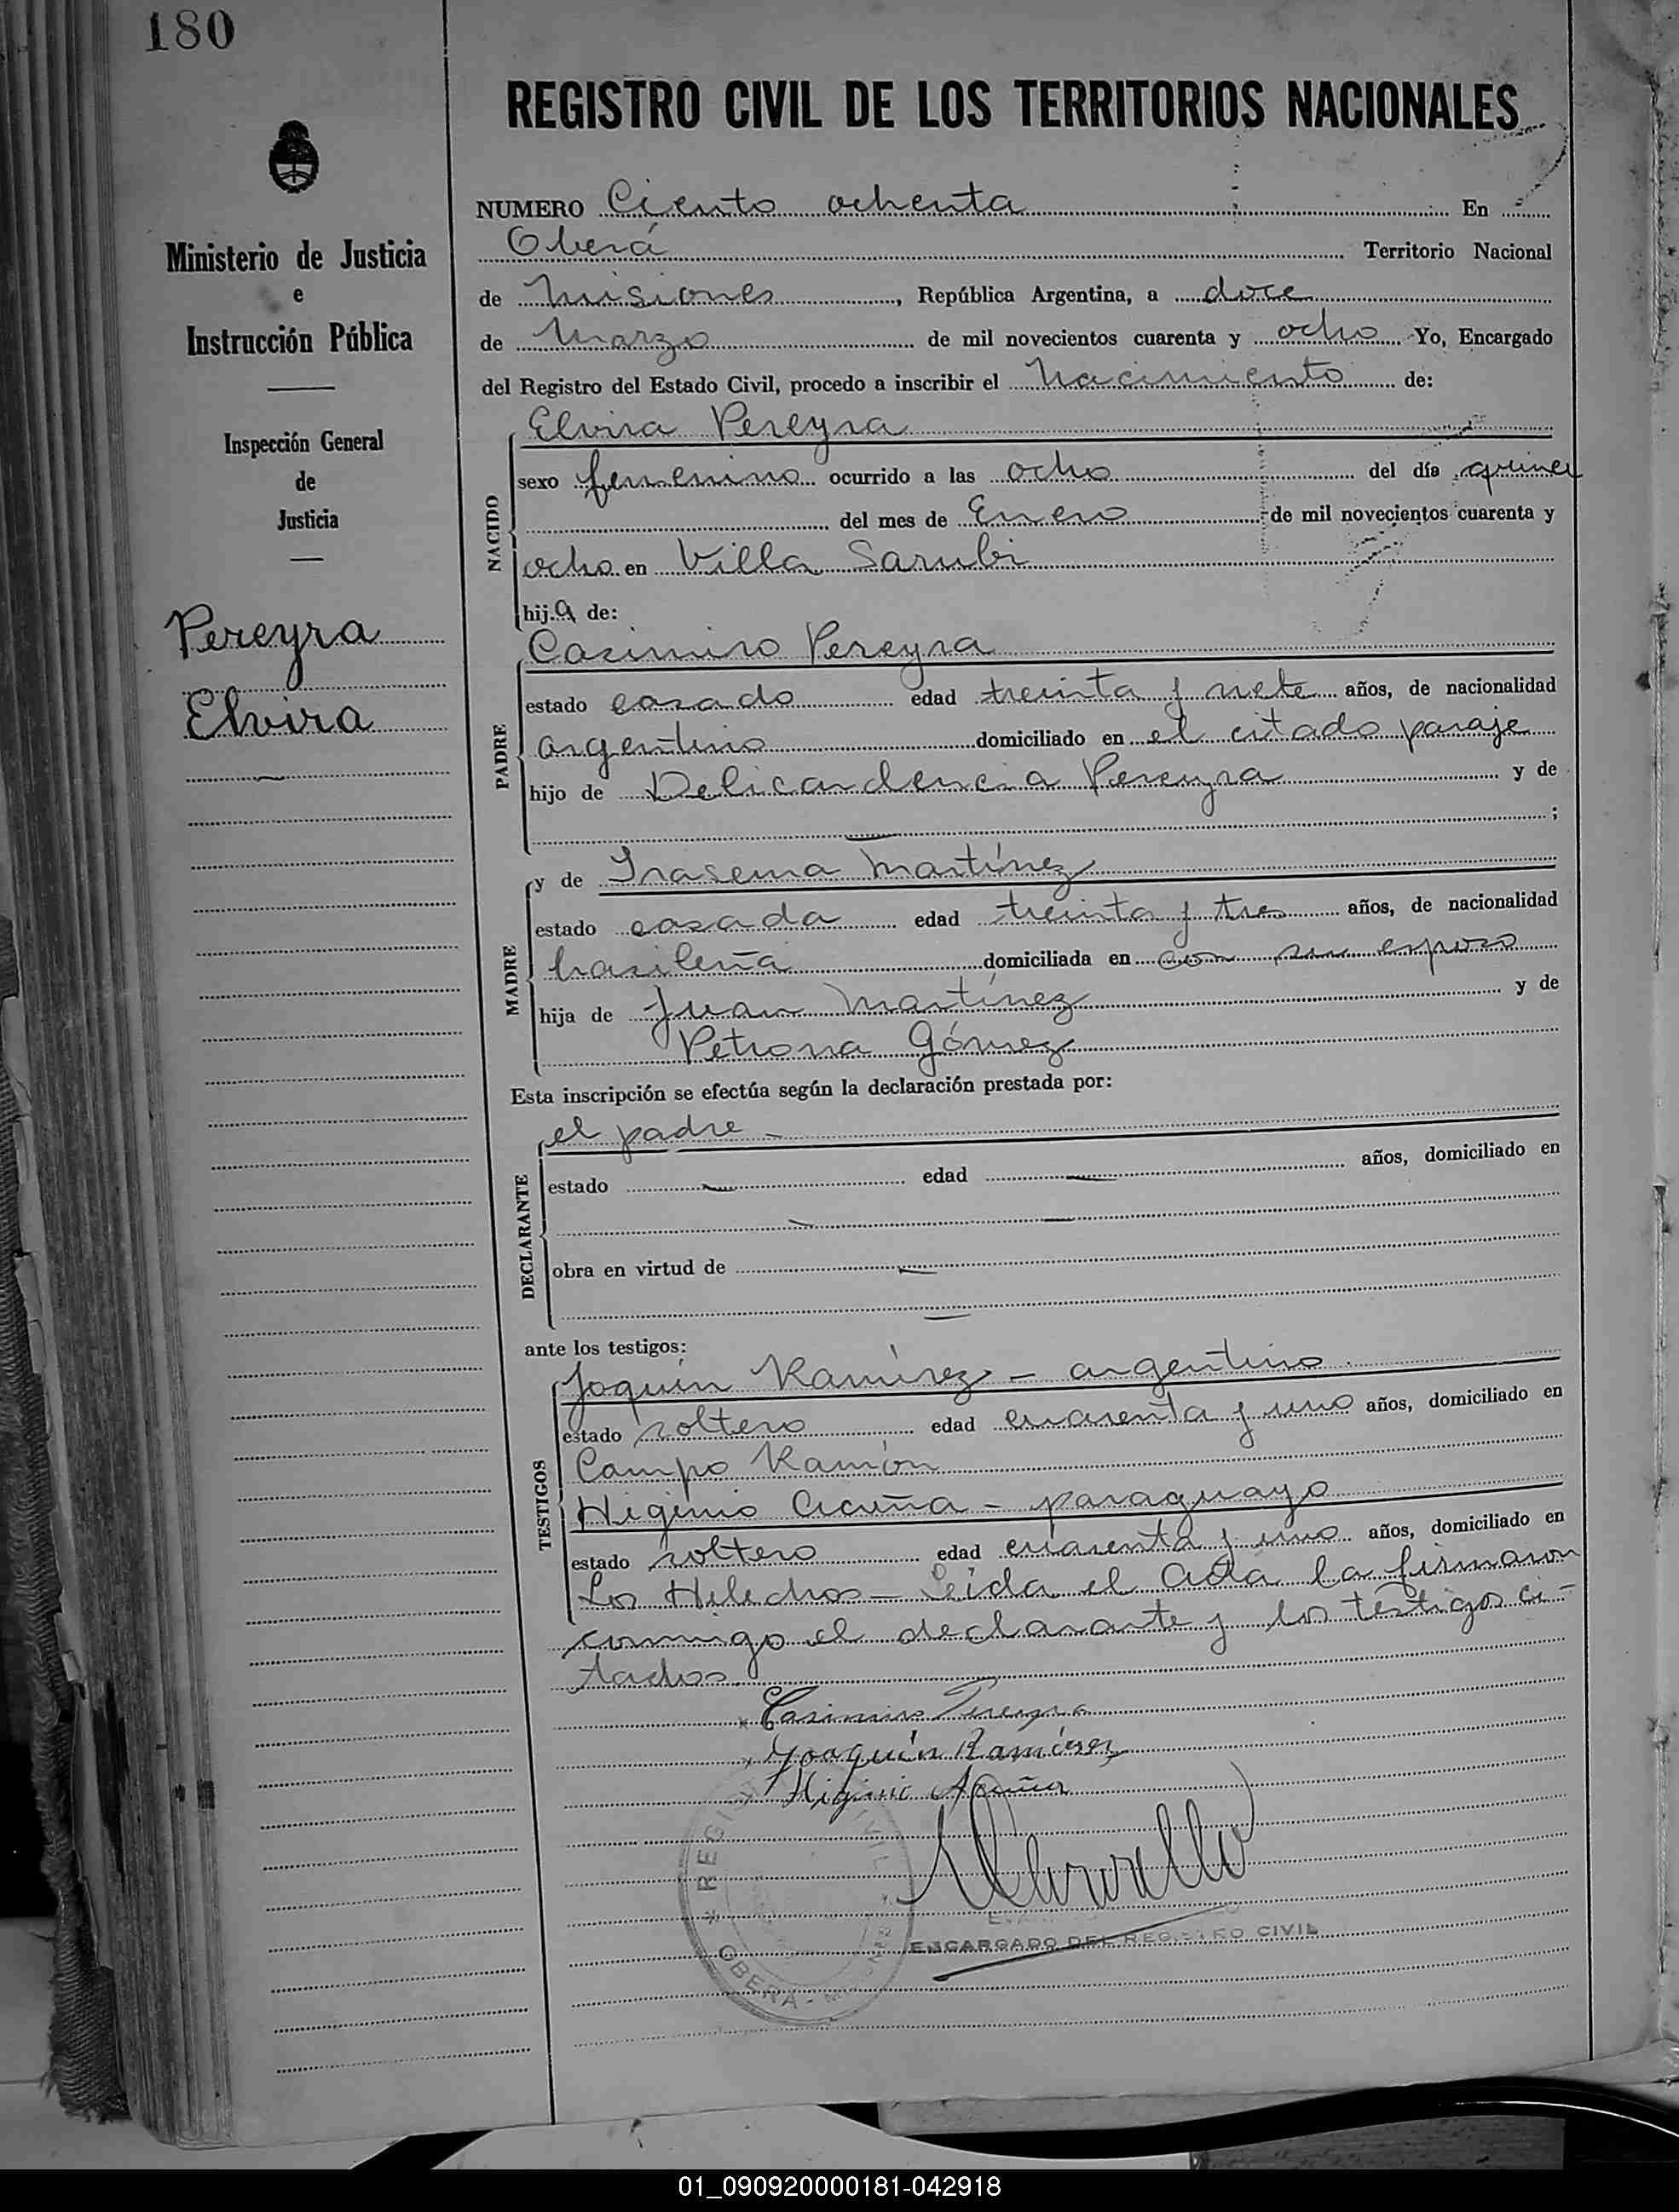 180
REGISTRO CIVIL DE LOS TERRITORIOS NACIONALES
Ministerio de Justicia
e
Instrucción Pública
Inspección General
de
Justicia
Pereyra
Elvira
NUMERO Ciento ochenta En
Oberá Territorio Nacional
de Misiones, República Argentina, a doce
de Marzo de mil novecientos cuarenta y ocho Yo, Encargado
del Registro del Estado Civil, procedo a inscribir el Nacimiento de:
NACIDO
Elvira Pereyra
sexo femenino ocurrido a las ocho del día
del mes de Enero de mil novecientos cuarenta y
ocho en Villa Sarubi
hija de:
PADRE
Casimiro Pereyra
estado casado edad treinta y siete años, de nacionalidad
argentino domiciliado en el citado paraje
hijo de Delicardencia Pereyra y de
;
MADRE
y de Irasema Martínez
estado casada edad treinta y tres años, de nacionalidad
brasileña domiciliada en con su esposo
hija de Juan Martínez y de
Petrona Gómez
Esta inscripción se efectúa según la declaración prestada por:
DECLARANTE
el padre -
estado edad años, domiciliado en
obra en virtud de
ante los testigos:
TESTIGOS
Joaquín Ramírez - argentino
estado soltero edad cuarenta y uno años, domiciliado en
Campo Ramón
Higinio Acuña - paraguayo
estado soltero edad cuarenta y uno años, domiciliado en
Los Helechos - Leída el Acta la firmaron
conmigo el declarante y los testigos ci-
tados.
Casimiro Pereyra
Joaquín Ramírez
Higinio Acuña
ENCARGADO DEL REGISTRO CIVIL
OBERA
01_090920000181-042918